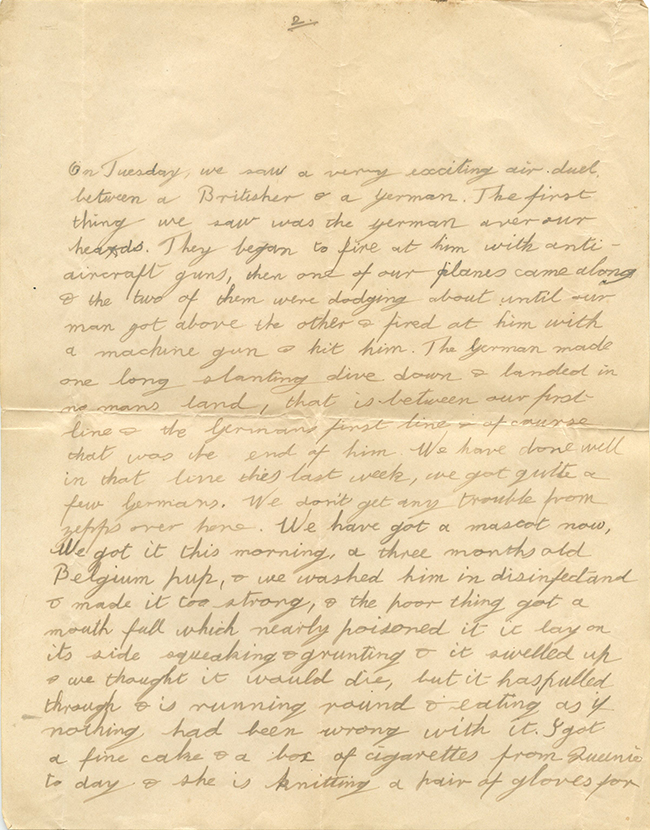 2.
On Tuesday, we saw a very exciting air duel,
between a Britisher & a German. The first
thing we saw was the German over our
heads. They began to fire at him with anti-
aircraft guns, then one of our planes came along
& the two of them were dodging about until our
man got above the other & fired at him with
a machine gun & hit him. The German made
one long slanting dive down & landed in
no mans land, that is between our first
line & the Germans first line & of course
that was the end of him. We have done well
in that line this last week, we got quite a
few Germans. We don't get any trouble from
zepps over here. We have got a mascot now,
We got it this morning, a three months old
Belgium pup, & we washed him in disinfectand
& made it too strong, & the poor thing got a
mouth full which nearly poisoned it it lay on
its side squeaking & grunting & it swelled up
& we thought it would die, but it has pulled
through & is running round & eating as if
nothing had been wrong with it. I got
a fine cake & a box of cigarettes from Queenie
to day & she is knitting a pair of gloves for